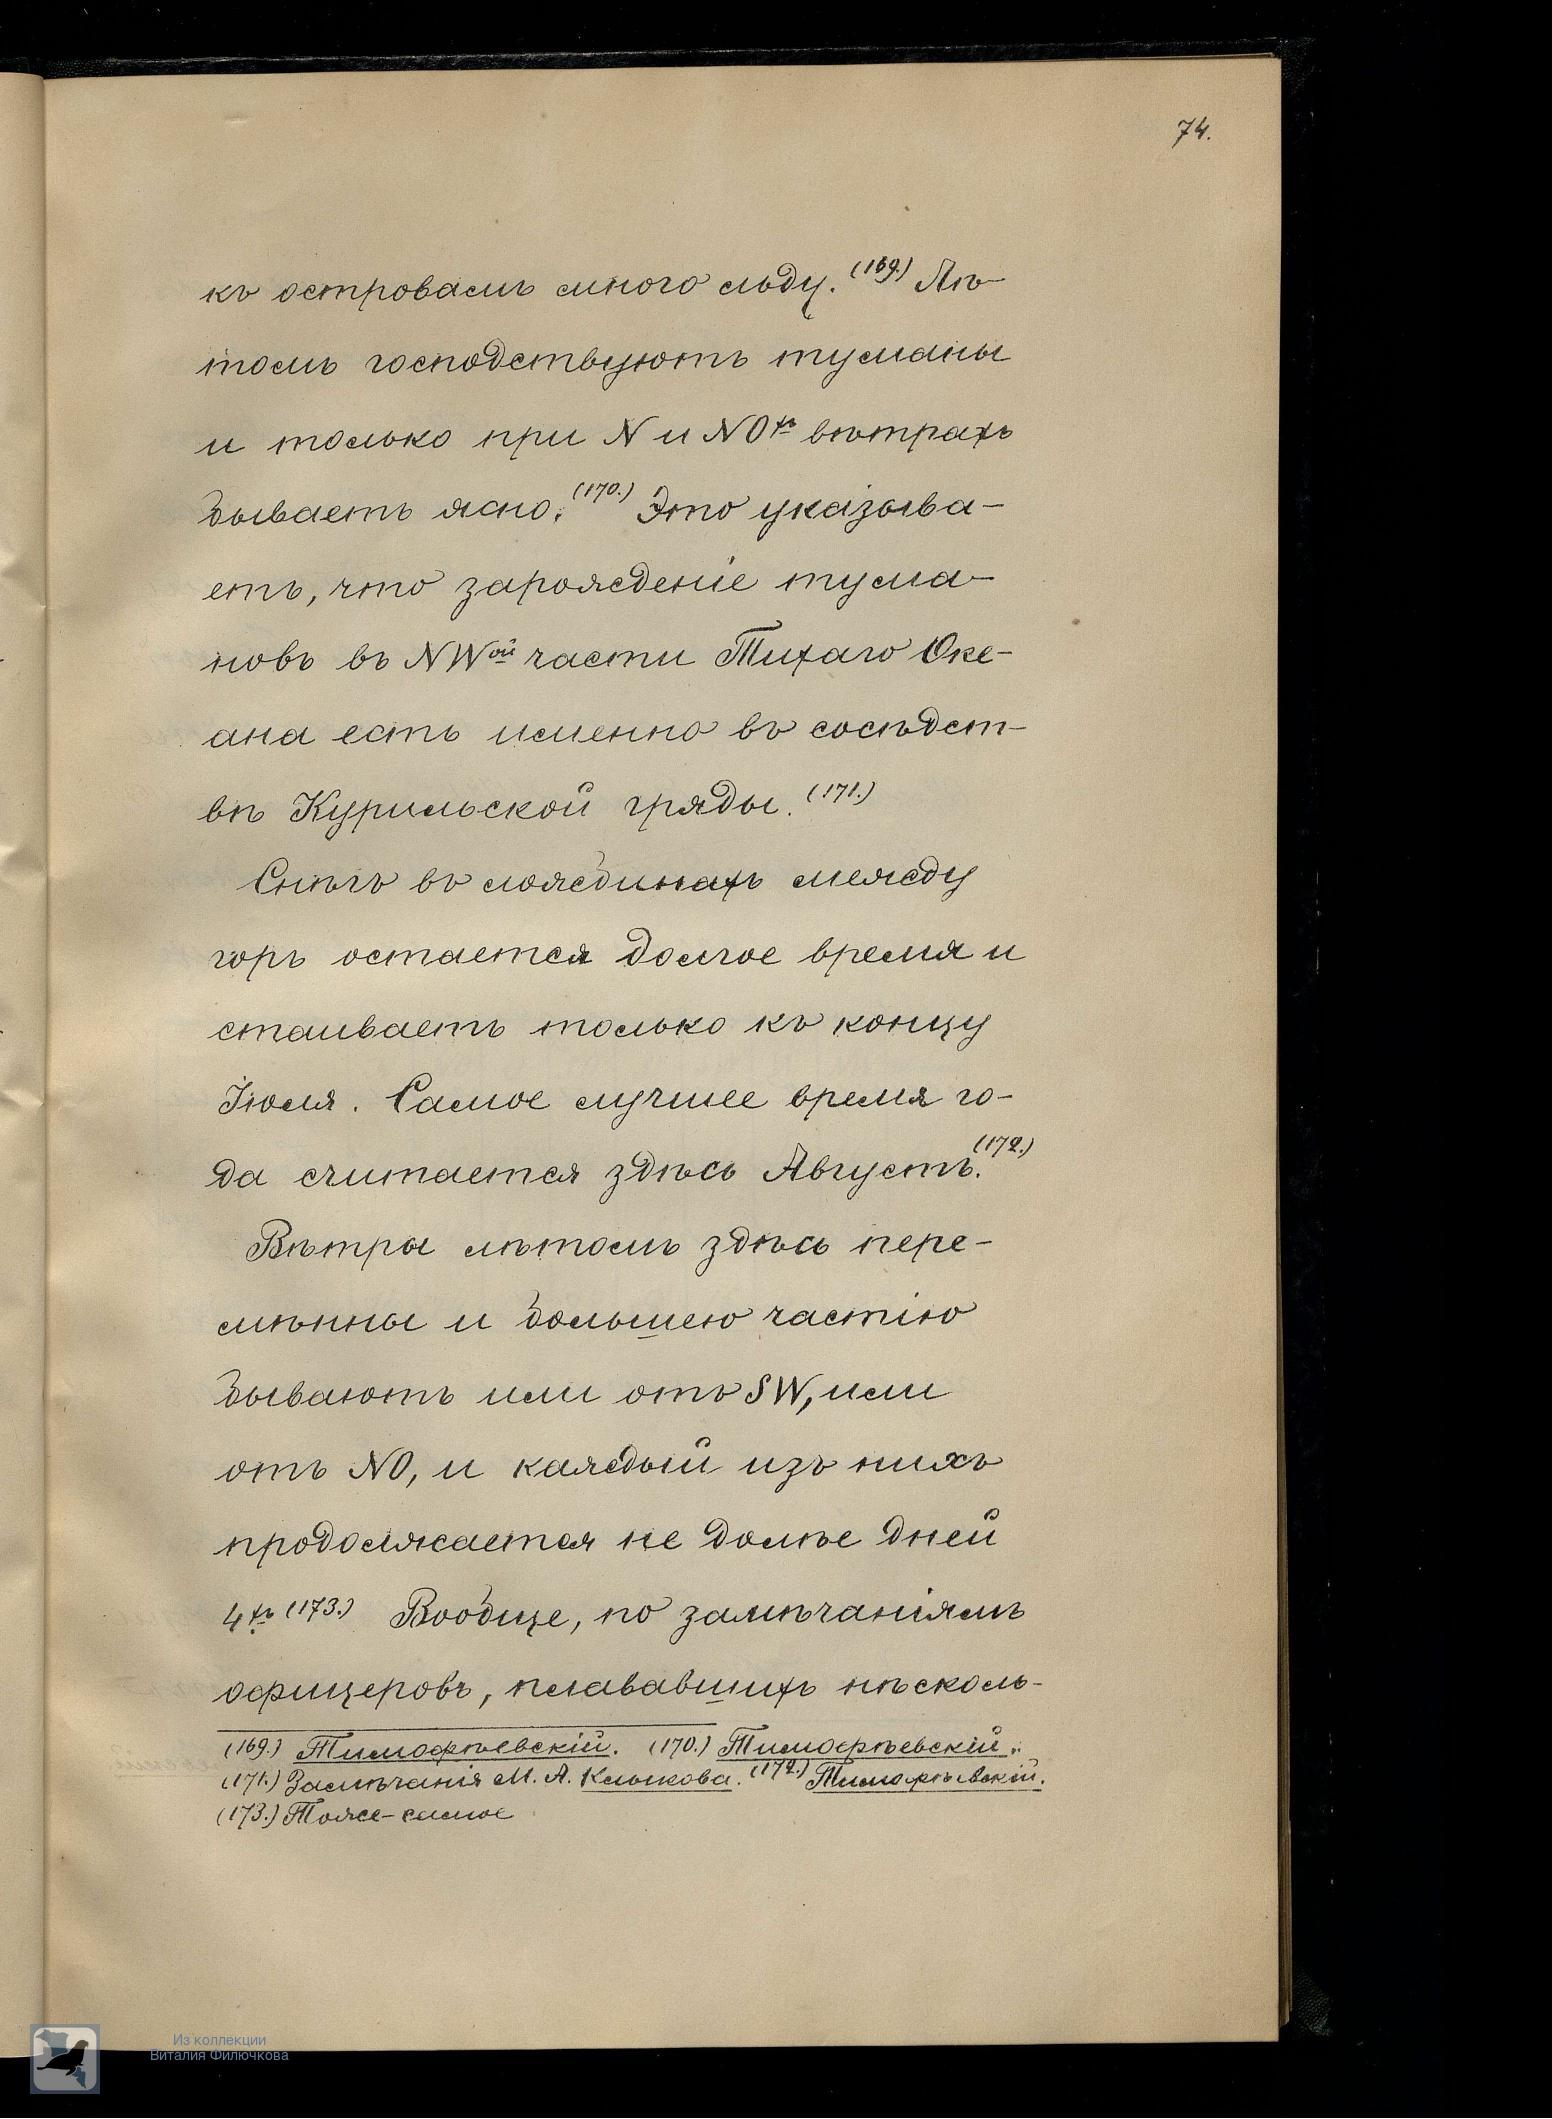 74.
къ островамъ много льду. (169.) Лѣ-
томъ господствуютъ туманы
и только при N и NOхъ вѣтрахъ
бываетъ ясно. (170.) Это указыва-
етъ, что зарожденіе тума-
новъ въ NWой части Тихаго Оке-
ана есть именно въ сосѣдст-
вѣ Курильской гряды. (171.)
Снѣгъ въ ложбинахъ между
горъ остается долгое время и
стаиваетъ только къ концу
Іюля. Самое лучшее время го-
да считается здѣсь Августъ. (172.)
Вѣтры лѣтомъ здѣсь пере-
мѣнны и большею частію
бываютъ или отъ SW, или
отъ NO, и каждый изъ нихъ
продолжается не долѣе дней
4хъ (173.) Вообще, по замѣчаніямъ
офицеровъ, плававшихъ нѣсколь-
(169.) Тимофѣевскій. (170.) Тимофѣевскій.
(171.) Замѣчанія М. А. Клыкова. (172.) Тимофѣевскій.
(173.) Тоже-самое
Из коллекции
Виталия Филючкова